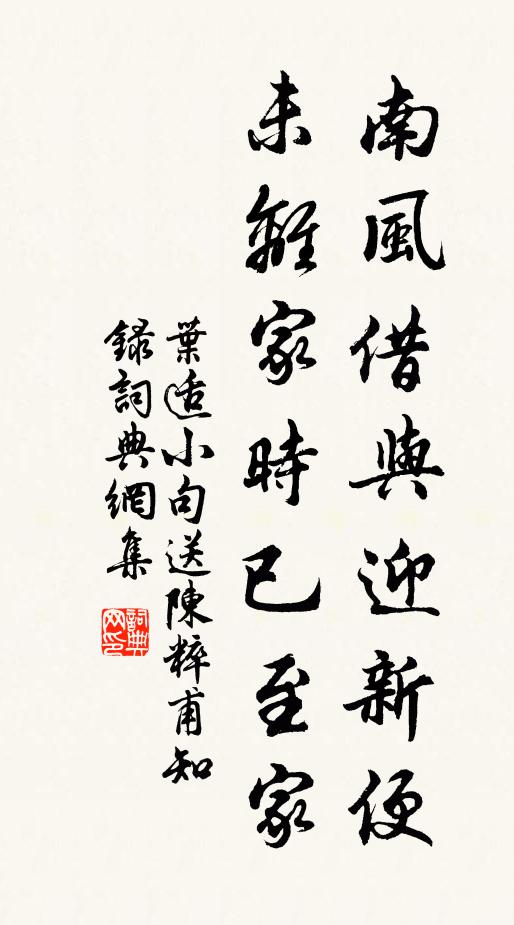 南風借與迎新便
未離家時已至家
葉适小句送陳粹甫知
錄詞典網集
詞典网印